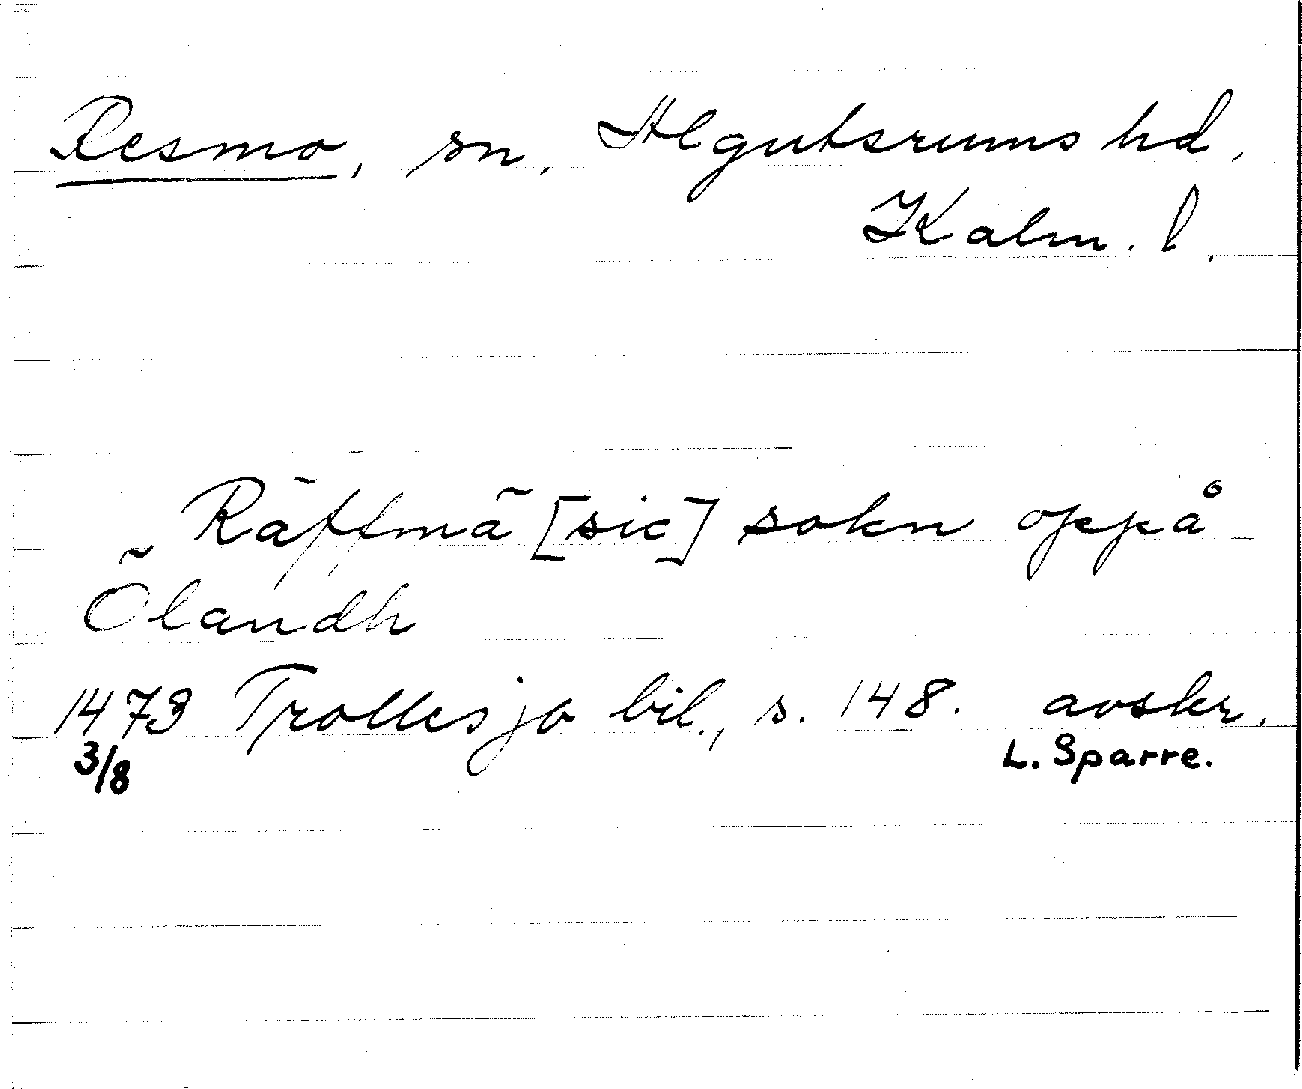 Resmo, sn, Algutsrums hd,
Kalm. l.
Räffmä [sic] sokn oppå
Ölandh
1473 Trollesjö bil., s. 148. avskr.
3/8 L. Sparre.